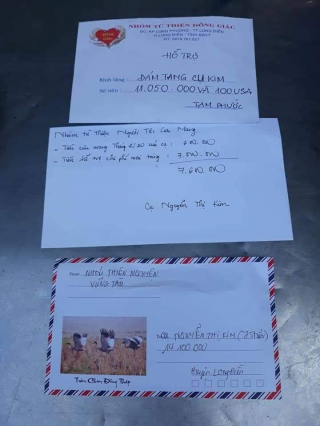 NHÓM TỪ THIỆN ĐỒNG GIÁC
HỖ TRỢ
ĐÁM TANG CỤ KIM
Số tiền: 11.050.000 VÀ 100 USA
TAM PHƯỚC
Nhóm từ Thiện Người Tôi Cưu Mang
- Tiền cưu mang Tháng 2/20 của cụ : 600.000
- Tiền hỗ trợ chi phí mai táng : 7.000.000
7.600.000
Cụ Nguyễn Thị Kim
NHÓM THIỆN NGUYỆN
VŨNG TÀU
NGUYỄN THỊ KIM (75 tuổi)
14.100.000
Huyện Long Điền
Tràm Chim Đồng Tháp